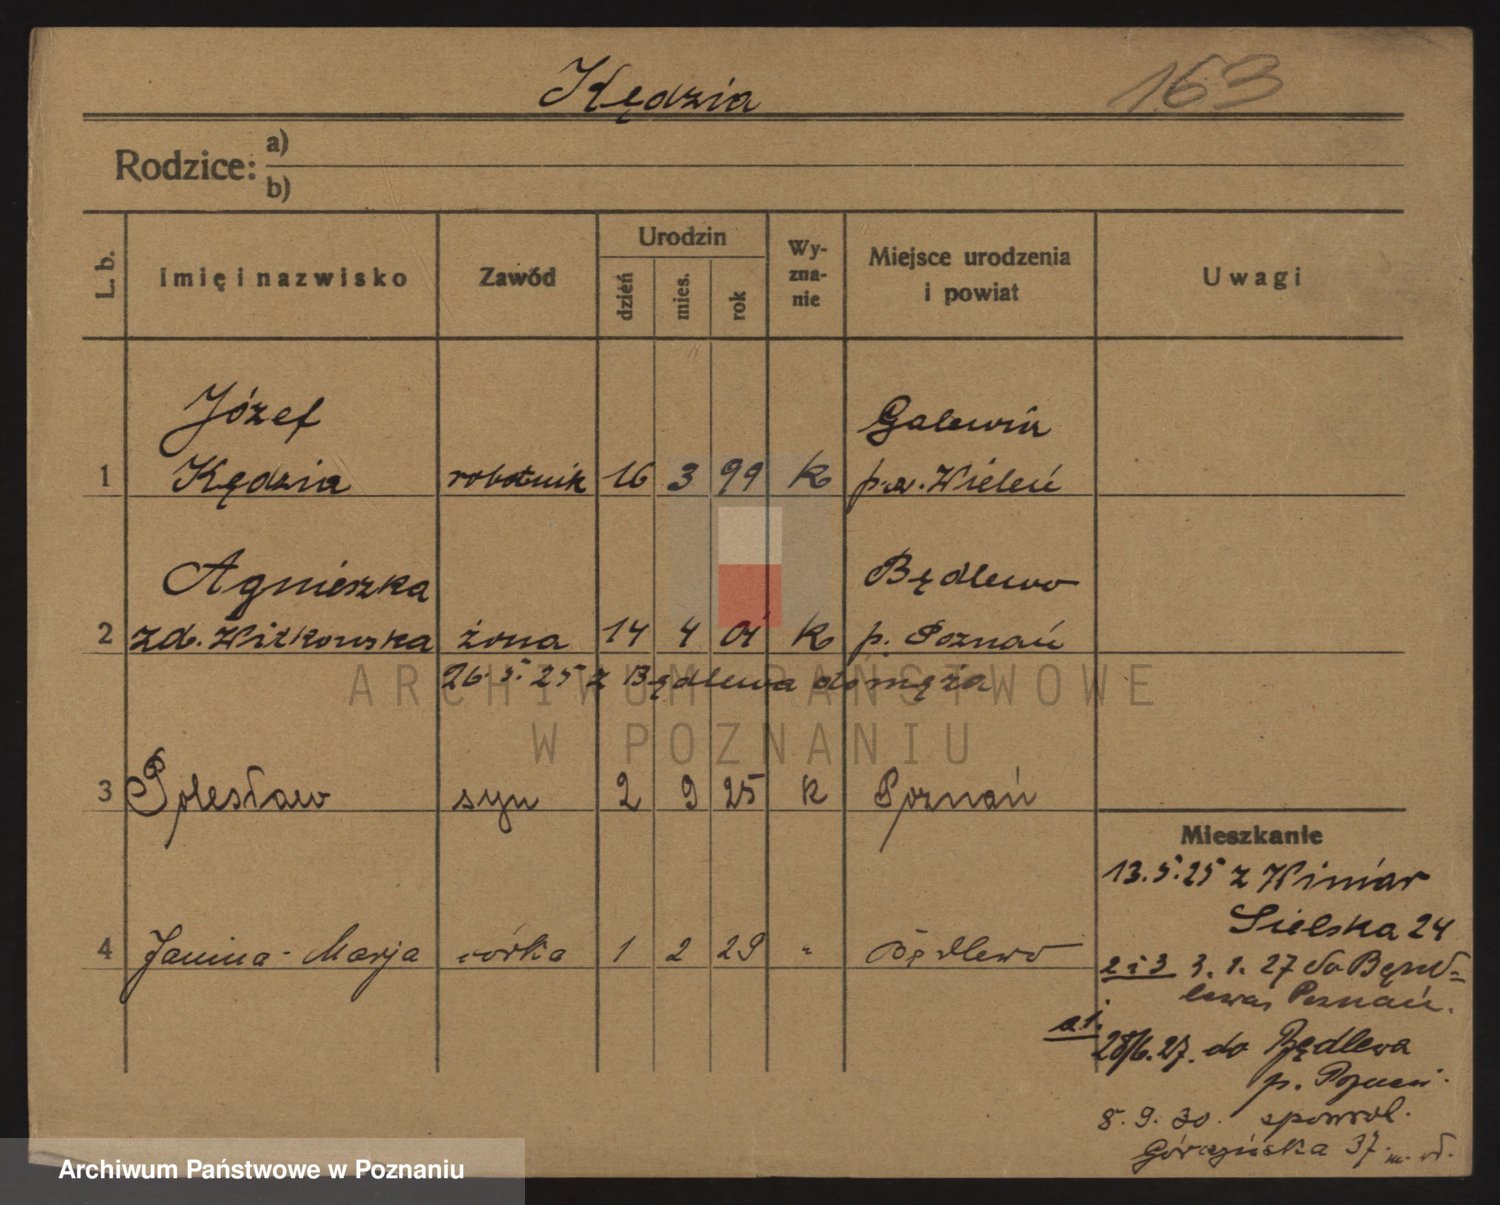 Kędzia
163
Rodzice:
a)
b)
L. b.
Imię i nazwisko
Zawód
Urodzin
dzień
mies.
rok
Wy-
zna-
nie
Miejsce urodzenia
i powiat
Uwagi
Józef
Galewia
1 Kędzia robotnik 16 3 99 k Wieleń
Agnieszka
Będlewo
2 zd. Witkowska żona 14 4 01 k p. Poznań
26.5.25 z Będlewa do męża
3 Bolesław syn 2 9 25 k Poznań
4 Janina-Marja córka 1 2 29 " Będlewo
Mieszkanie
13.5.25 z Winiar
Sielska 24
2 i 3 3.1.27 do Będ=
lewa, Poznań.
28/6.27. do Będlewa
p. Poznań.
8.9.30. spowrot.
Górczyńska 37.
ARCHIWUM PAŃSTWOWE
W POZNANIU
Archiwum Państwowe w Poznaniu